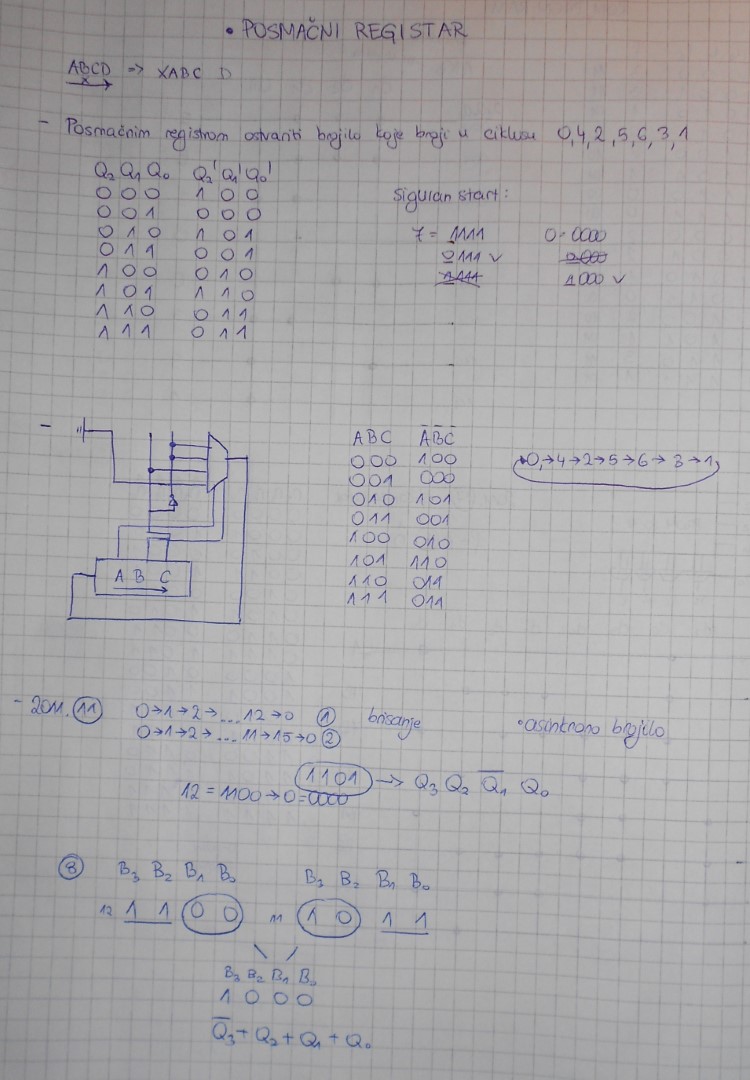 • POSMAČNI REGISTAR
ABCD => XABC D
x
- Posmačnim registrom ostvariti brojilo koje broji u ciklusu 0,4,2,5,6,3,1
Q₂ Q₁ Q₀ Q₂' Q₁' Q₀'
0 0 0 1 0 0
0 0 1 0 0 0
0 1 0 1 0 1
0 1 1 0 0 1
1 0 0 0 1 0
1 0 1 1 1 0
1 1 0 0 1 1
1 1 1 0 1 1
Siguran start:
7 = 1111 0=0000
0111 v 0000
1111 1000 v
-
A B C
ABC A̅B̅C̅
000 100
001 000
010 101
011 001
100 010
101 110
110 011
111 011
0,→4→2→5→6→3→1,
- 2011. 11 0→1→2→...12→0 1 brisanje • asinkrono brojilo
0→1→2→...11→15→0 2
1101 → Q₃ Q₂ Q̅₁ Q₀
12 = 1100→0=0000
8 B₃ B₂ B₁ B₀ B₃ B₂ B₁ B₀
12 1 1 0 0 11 1 0 1 1
B₃ B₂ B₁ B₀
1 0 0 0
Q̅₃ + Q₂ + Q₁ + Q₀